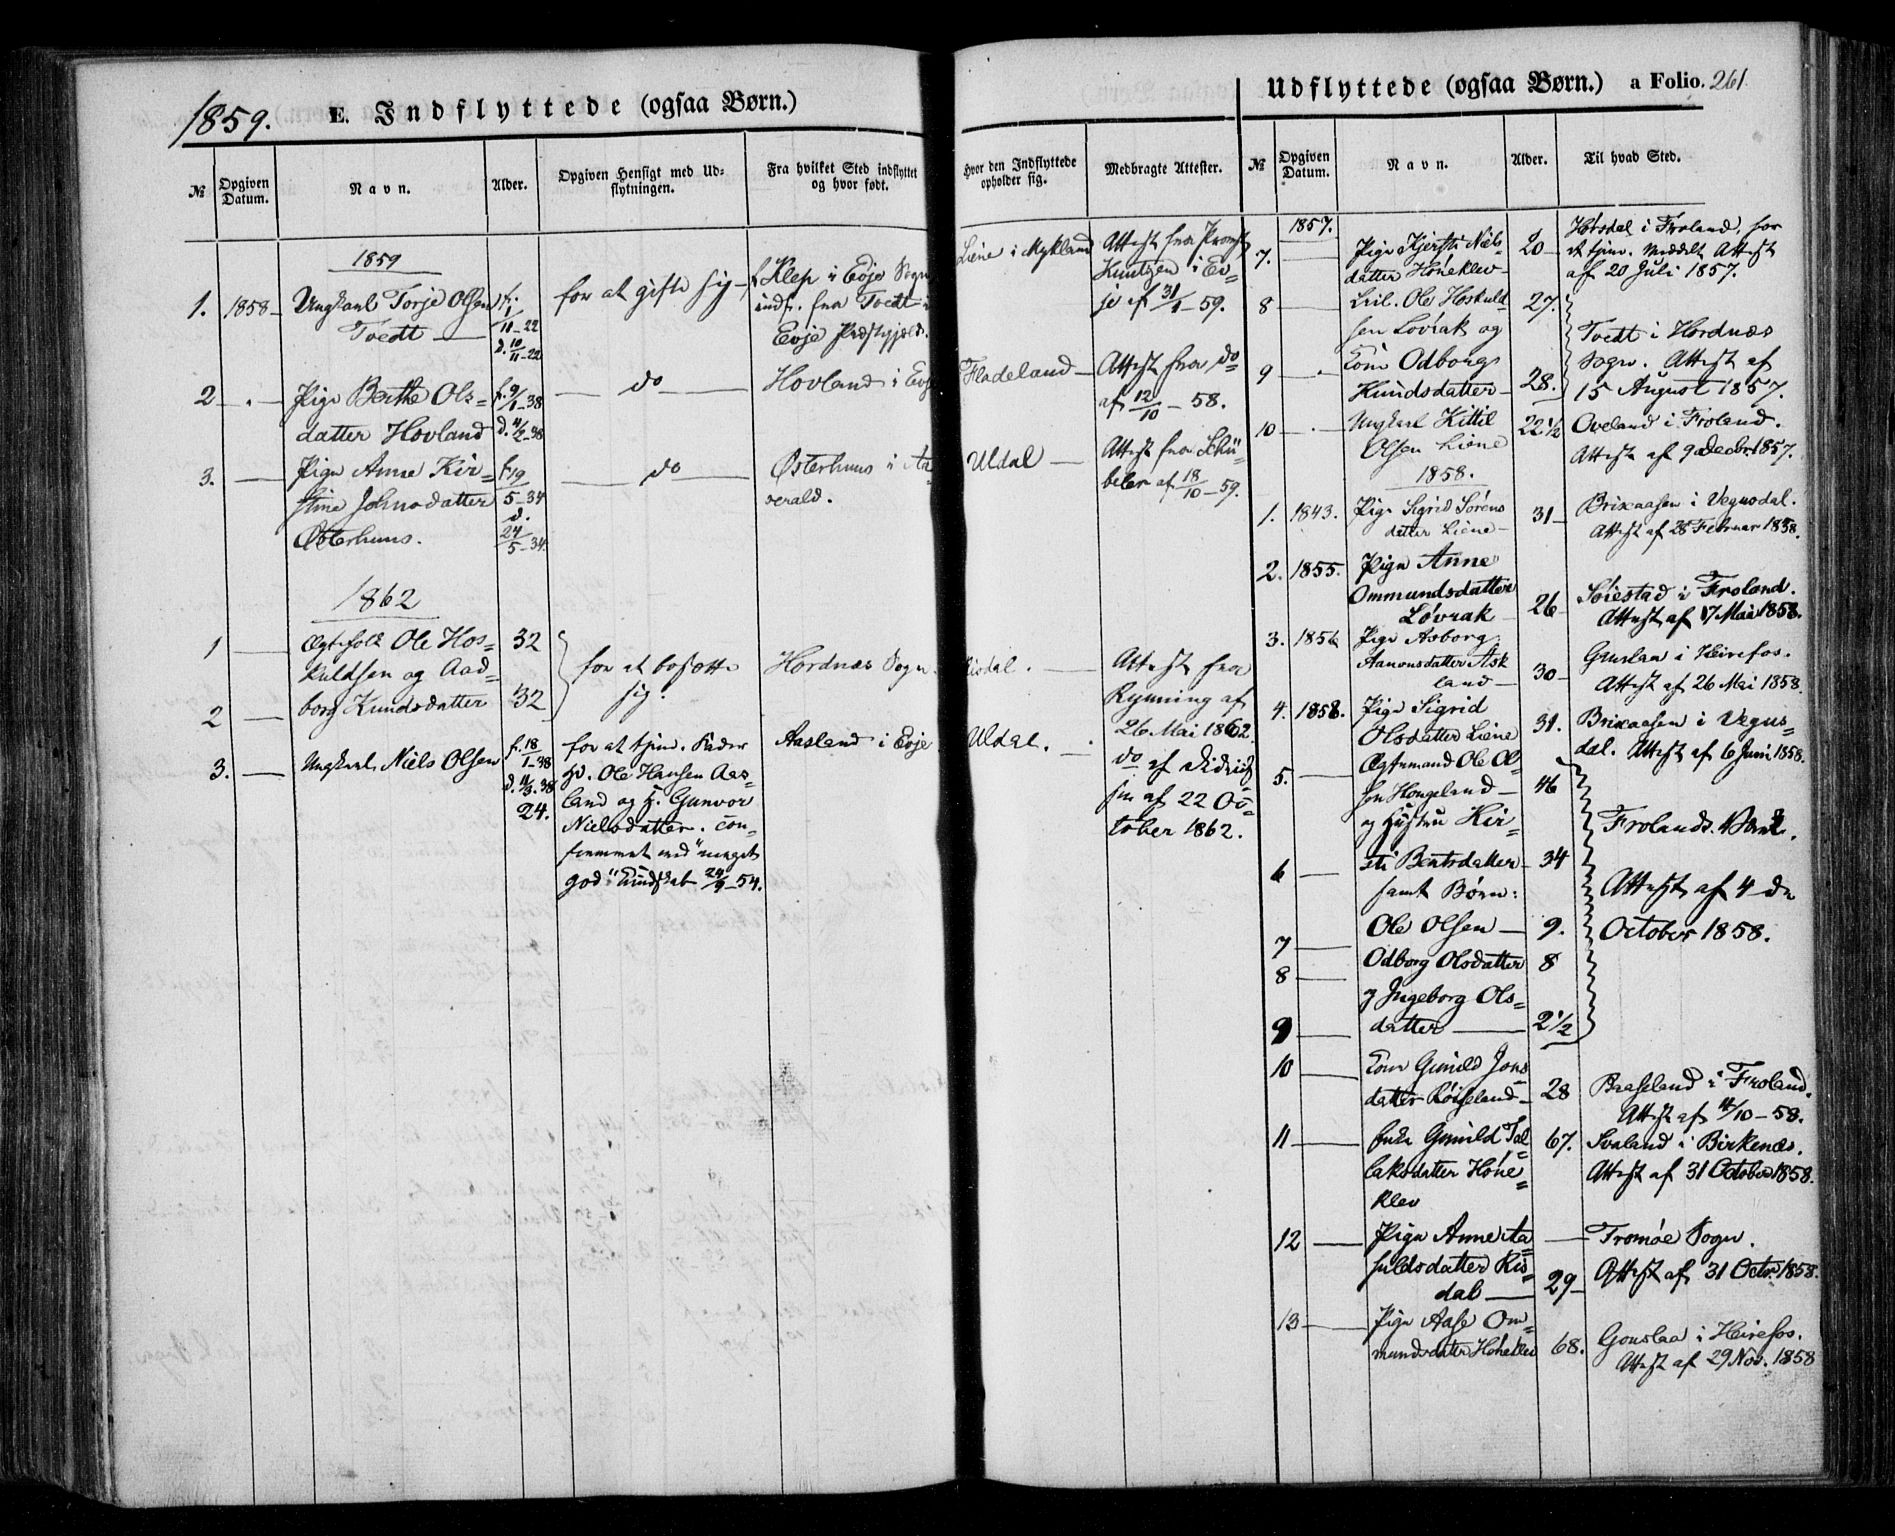 1859.
E. Indflyttede (ogsaa Børn.)
№
Opgiven Datum.
Navn.
Alder.
Opgiven Hensigt med Ud=
flytningen.
Fra hvilket Sted indflyttet
og hvor født.
Hvor den Indflyttede
opholder sig.
Medbragte Attester.
1859
1. 1858 — Ungkarl Torje Olsen
Tvedt —
for at gifte sig —
Klep i Evje Sogn
indf. fra Tvedt i
Evje Præstegjæld.
Liene i Mykland
Attest fra Provst
Knutzen i Ev=
je af 31/1 — 59.
2 — Pige Berthe Ols=
datter Hovland
f. 9/1 — 38
d. 4/2 — 38
— do —
Hovland i Evje
Fladeland —
Attest fra do
af 12/10 — 58.
3. — Pige Anne Kir=
stine Johnsdatter
Østerhuus.
f. 19/5 — 34
d. 24/5 — 34.
— do —
Østerhuus i Aa=
serald.
Uldal —
Attest fra Schü=
beler af 18/10 — 59.
1862
1 — Ægtefolk Ole Hos=
kuldsen og Aad=
2 — borg Knudsdatter
32
32
for at bosætte
sig.
Hordnæs Sogn.
Risdal. —
Attest fra
Rynning af
26 Mai 1862.
3. — Ungkarl Niels Olsen
f. 18/1 — 38
d. 11/3. 38
24.
for at tjene. Fader
Hd. Ole Hansen Aas=
land og H. Gunvor
Nielsdatter. Con=
firmeret med "meget
god" Kundskab 24/9 — 54.
Aasland i Evje
Uldal. —
do af Didrich=
sen af 22 Oc=
tober 1862.
Udflyttede (ogsaa Børn.) a Folio. 261
№
Opgiven Datum.
Navn.
Alder.
Til hvad Sted.
1857.
7. — Pige Kjersti Niels
datter Høneklev —
20 —
Hørsdal i Froland, for
at tjene. Meddelt Attest
af 20 Juli 1857.
8 — Ole Hoskuld
sen Løvrak og
27.
9 — Kone Odborg
Knudsdatter —
28.
Tvedt i Hordnæs
Sogn. Attest af
15 August 1857.
10 — Ungkarl Kittil
Olsen Liene
22 1/2
Oveland i Froland.
Attest af 9 Decbr 1857.
1858.
1. 1843. Pige Sigrid Sørens
datter Liene —
31 —
Brixaasen i Vegusdal.
Attest af 28 Februar 1858.
2. 1855. Pige Anne
Ommundsdatter
Løvrak
26 —
Søiestad i Froland.
Attest af 17 Mai 1858.
3. 1856 Pige Asborg
Aanonsdatter Ask
land —
30 —
Gauslaa i Heirefos.
Attest af 26 Mai 1858.
4. 1858. Pige Sigrid
Olsdatter Liene
31.
Brixaasen i Vegus=
dal. Attest af 6 Juni 1858.
5. — Ægtemand Ole Ol=
sen Hongeland —
46
og Hustru Kir=
6 — sti Bentsdatter —
34
samt Børn:
7 — Ole Olsen —
9.
8 — Odborg Olsdatter
8
og Ingeborg Ols=
9 — datter —
2 1/2
Frolands Værk.
Attest af 4 de
October 1858.
10 — Kone Gunild Jons
datter Røiseland —
28
Baaseland i Froland.
Attest af 4/10 — 58.
11 — Enke Gunild Tal=
laksdatter Høne=
klev
67.
Svaland i Birkenæs.
Attest af 31 October 1858.
12 — Pige Anne Aa=
suldsdatter Ris=
dal —
29 —
Tromøe Sogn.
Attest af 31 Octbr 1858.
13 — Pige Aase Om=
mundsdatter Høneklev
68.
Gouslaa i Heirefos.
Attest af 29 Nov. 1858